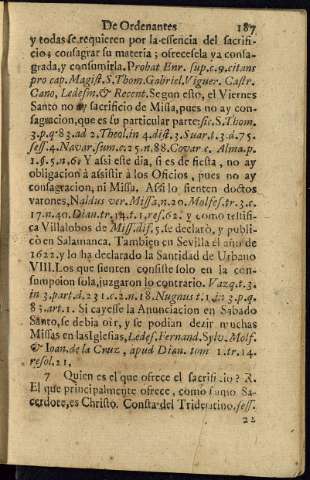 De Ordenantes 187
y todas se requieren por la essencia del sacrifi-
cio; consagrar su materia; ofrecersela ya consa-
grada, y consumirla. Probat Enr. sup. c. 9. citans
pro cap. Magist. S. Thom. Gabriel. Viguer. Castr.
Cano, Ledesm. & Recent. Segun esto, el Viernes
Santo no ay sacrificio de Missa, pues no ay con-
sagracion, que es su particular parte: sic. S. Thom.
3. p. q. 83. ad 2. Theol. in 4. dist. 3. Suar. t. 3. d. 75.
sess. 4. Navar. sum. c. 25. n. 88. Covar c. Alma. p.
1. §. 5. n. 6. Y assi este dia, si es de fiesta, no ay
obligacion à assistir à los Oficios, pues no ay
consagracion, ni Missa. Assi lo sienten doctos
varones, Naldus ver. Missa, n. 20. Molfes. tr. 3. c.
17. n. 40. Dian. tr. 14. t. 1. res. 62. y como testifi-
ca Villalobos de Miss. dif. 5. se declarò, y publi-
cò en Salamanca. Tambien en Sevilla el año de
1622. y lo ha declarado la Santidad de Urbano
VIII. Los que sienten consiste solo en la con-
sumpcion sola, juzgaron lo contrario. Vazq. t. 3.
in 3. part. d. 231. c. 2. n. 18. Nugnus t. 1. in 3. p. q.
83. art. 1. Si cayesse la Anunciacion en Sabado
Santo, se debia oir, y se podian dezir muchas
Missas en las Iglesias, Ledes. Fernand. Sylv. Molf.
& Ioan. de la Cruz, apud Dian. tom 1. tr. 14.
resol. 21.
7 Quien es el que ofrece el sacrificio? R.
El que principalmente ofrece, como sumo Sa-
cerdote, es Christo. Consta del Tridentino, sess.
22